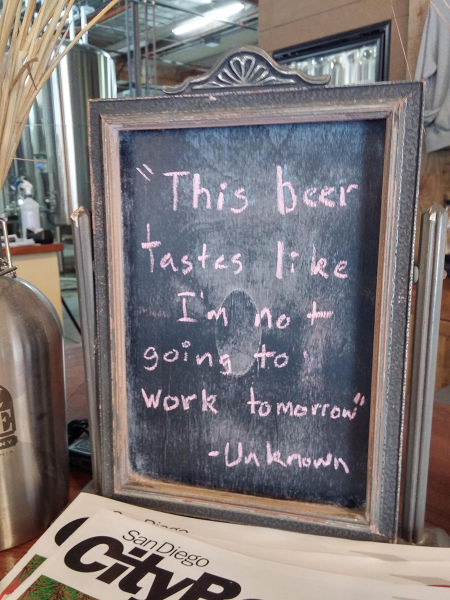 "This beer
tastes like
I'm not
going to
work tomorrow"
-Unknown
San Diego
San Diego